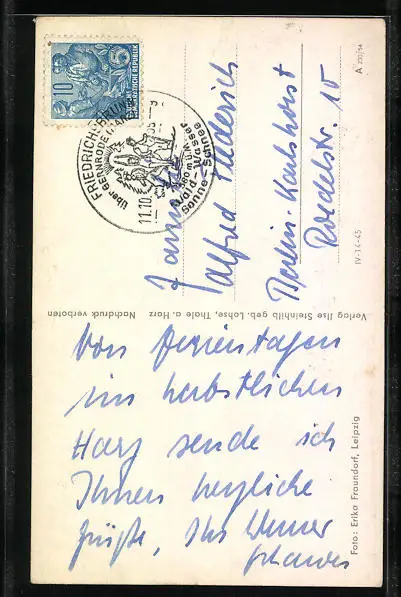 10
DEUTSCHE DEMOKRATISCHE REPUBLIK
FRIEDRICHSBRUNN
über GERNRODE (HARZ)
11.10.
580 m ü.N.N.
Wald-Wasser
Sonne-Schnee
A 230/54
Familie
Alfred
Berlin-Karlshorst
Roedelstr. 10
IV-14-45
Verlag Ilse Steinhilb geb. Lohse, Thale a. Harz Nachdruck verboten
Foto: Erika Fraundorf, Leipzig
Von Ferientagen
im herbstlichen
Harz sende ich
Ihnen herzliche
Grüße, Ihr Werner